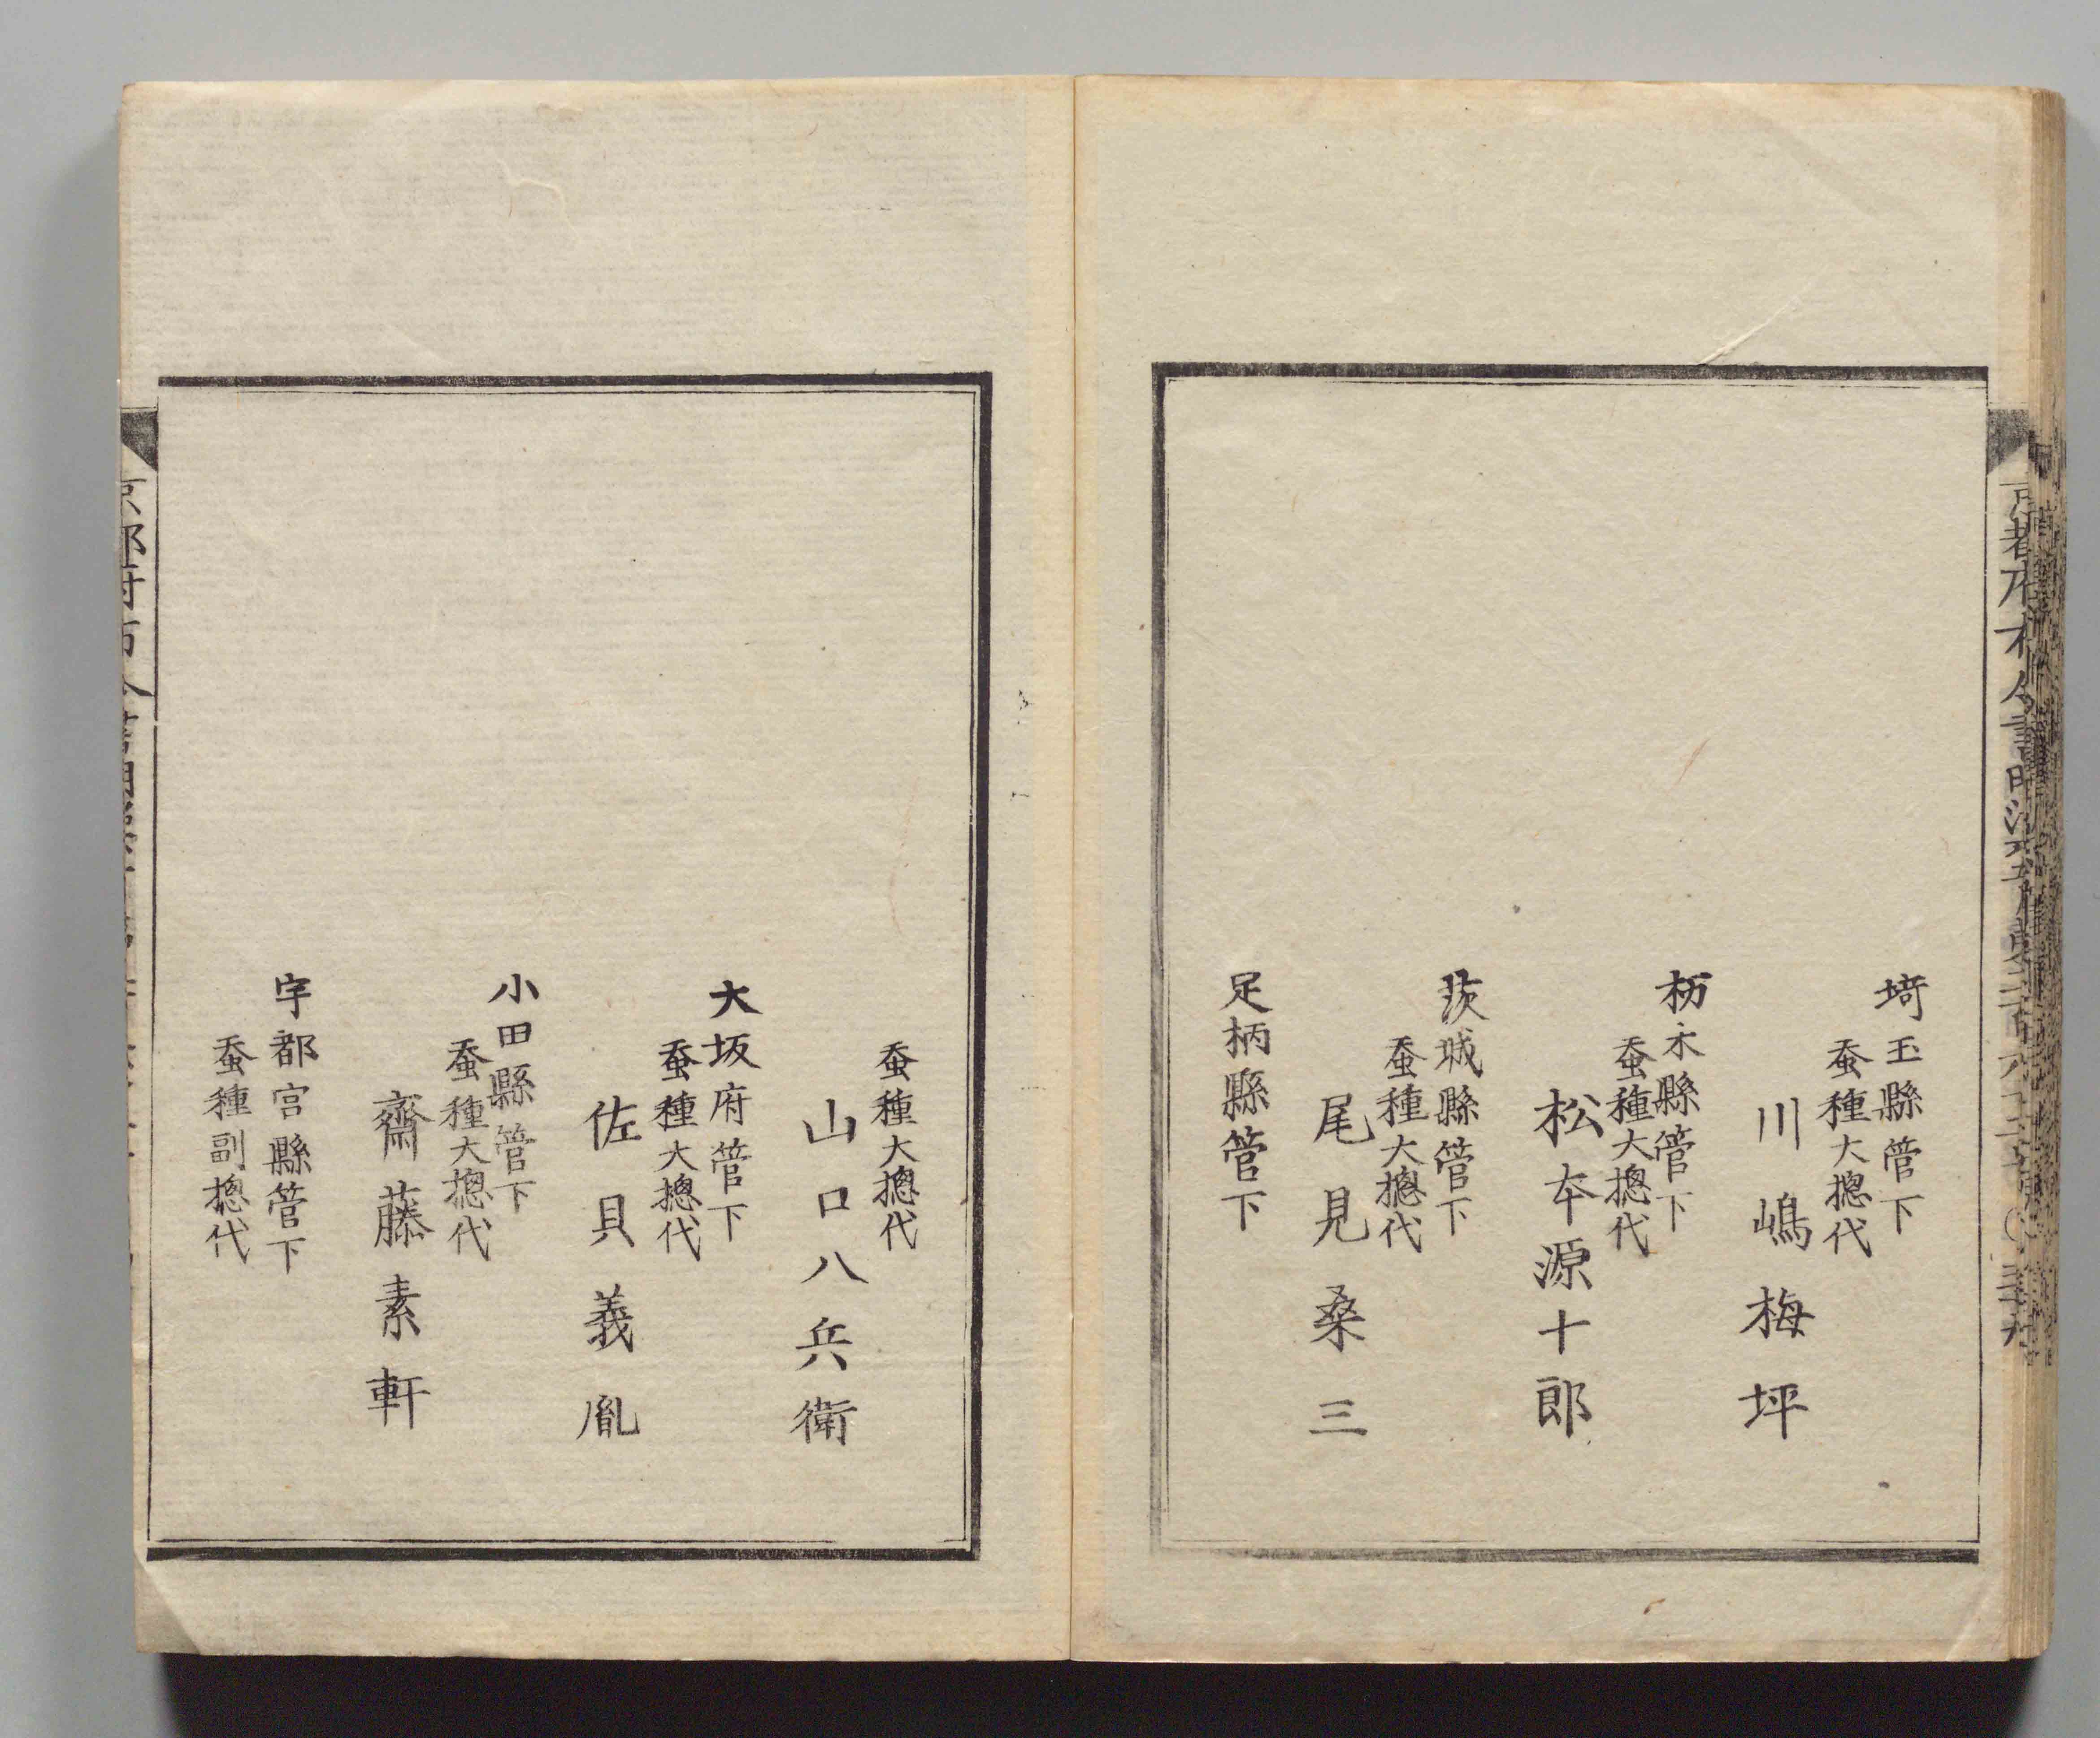 埼玉縣管下
蚕種大摠代
川嶋梅坪
栃木縣管下
蚕種大摠代
松本源十郎
茨城縣管下
蚕種大摠代
尾見桑三
足柄縣管下
蚕種大摠代
山口八兵衛
大坂府管下
蚕種大摠代
佐貝義胤
小田縣管下
蚕種大摠代
齋藤素軒
宇都宮縣管下
蚕種副摠代